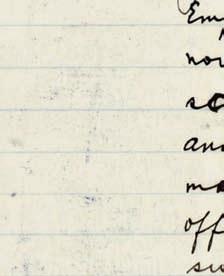 Em
nor
so
and
ma
off
su